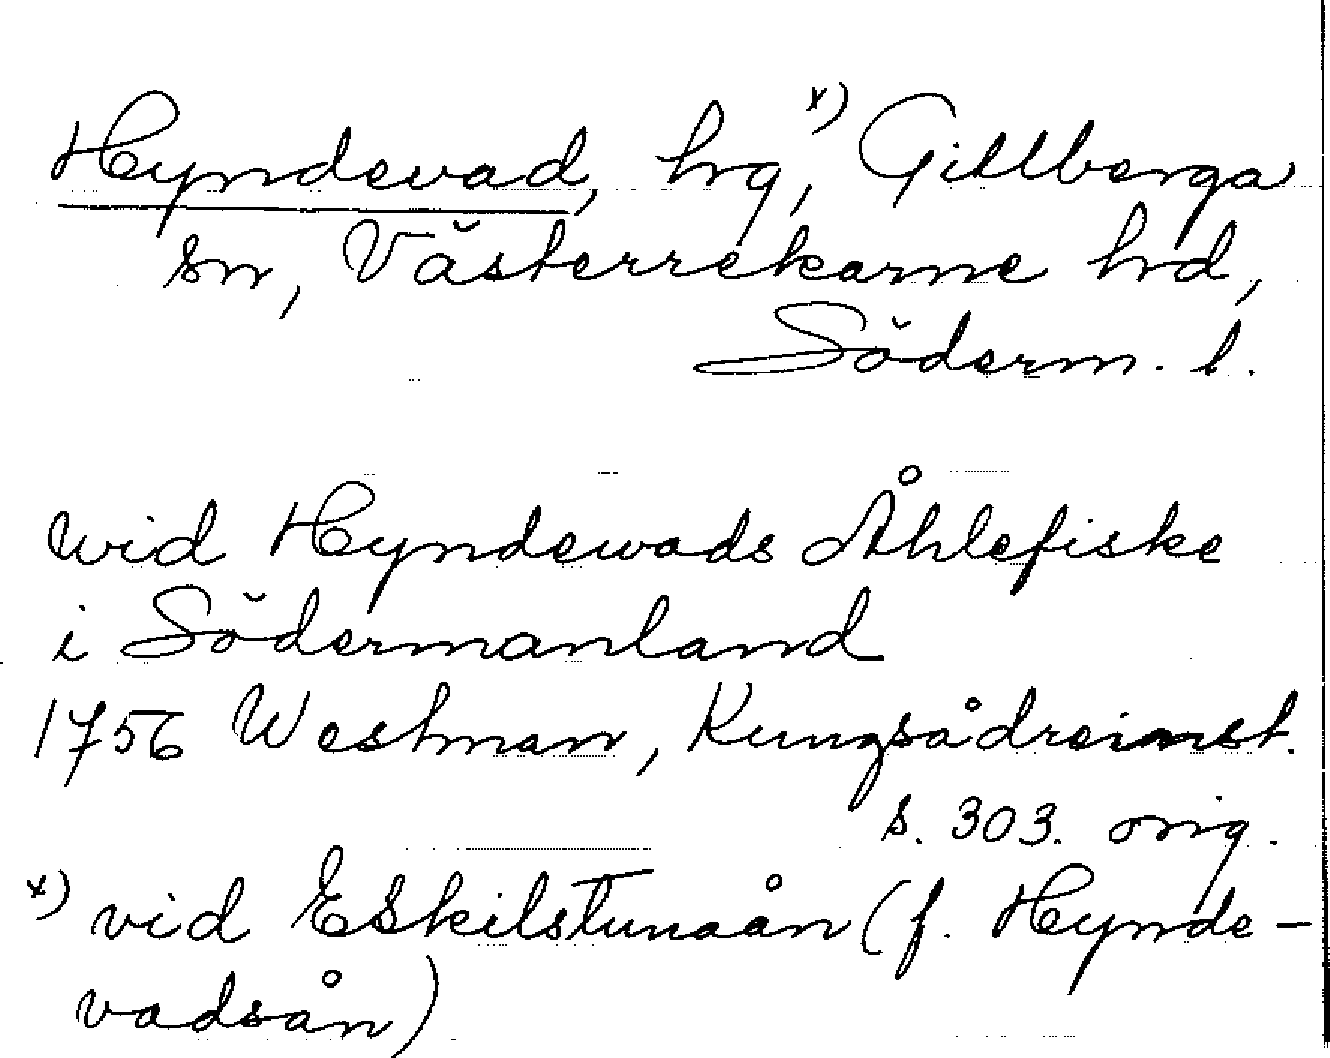 Hyndevad, hrg, x) Gillberga
sn, Västerrekarne hrd,
Söderm. l.
wid Hyndewads Åhlefiske
i Södermanland
1756 Westman, Kungsådreinst.
s. 303. orig.
x) vid Eskilstunaån (f. Hynde-
vadsån)